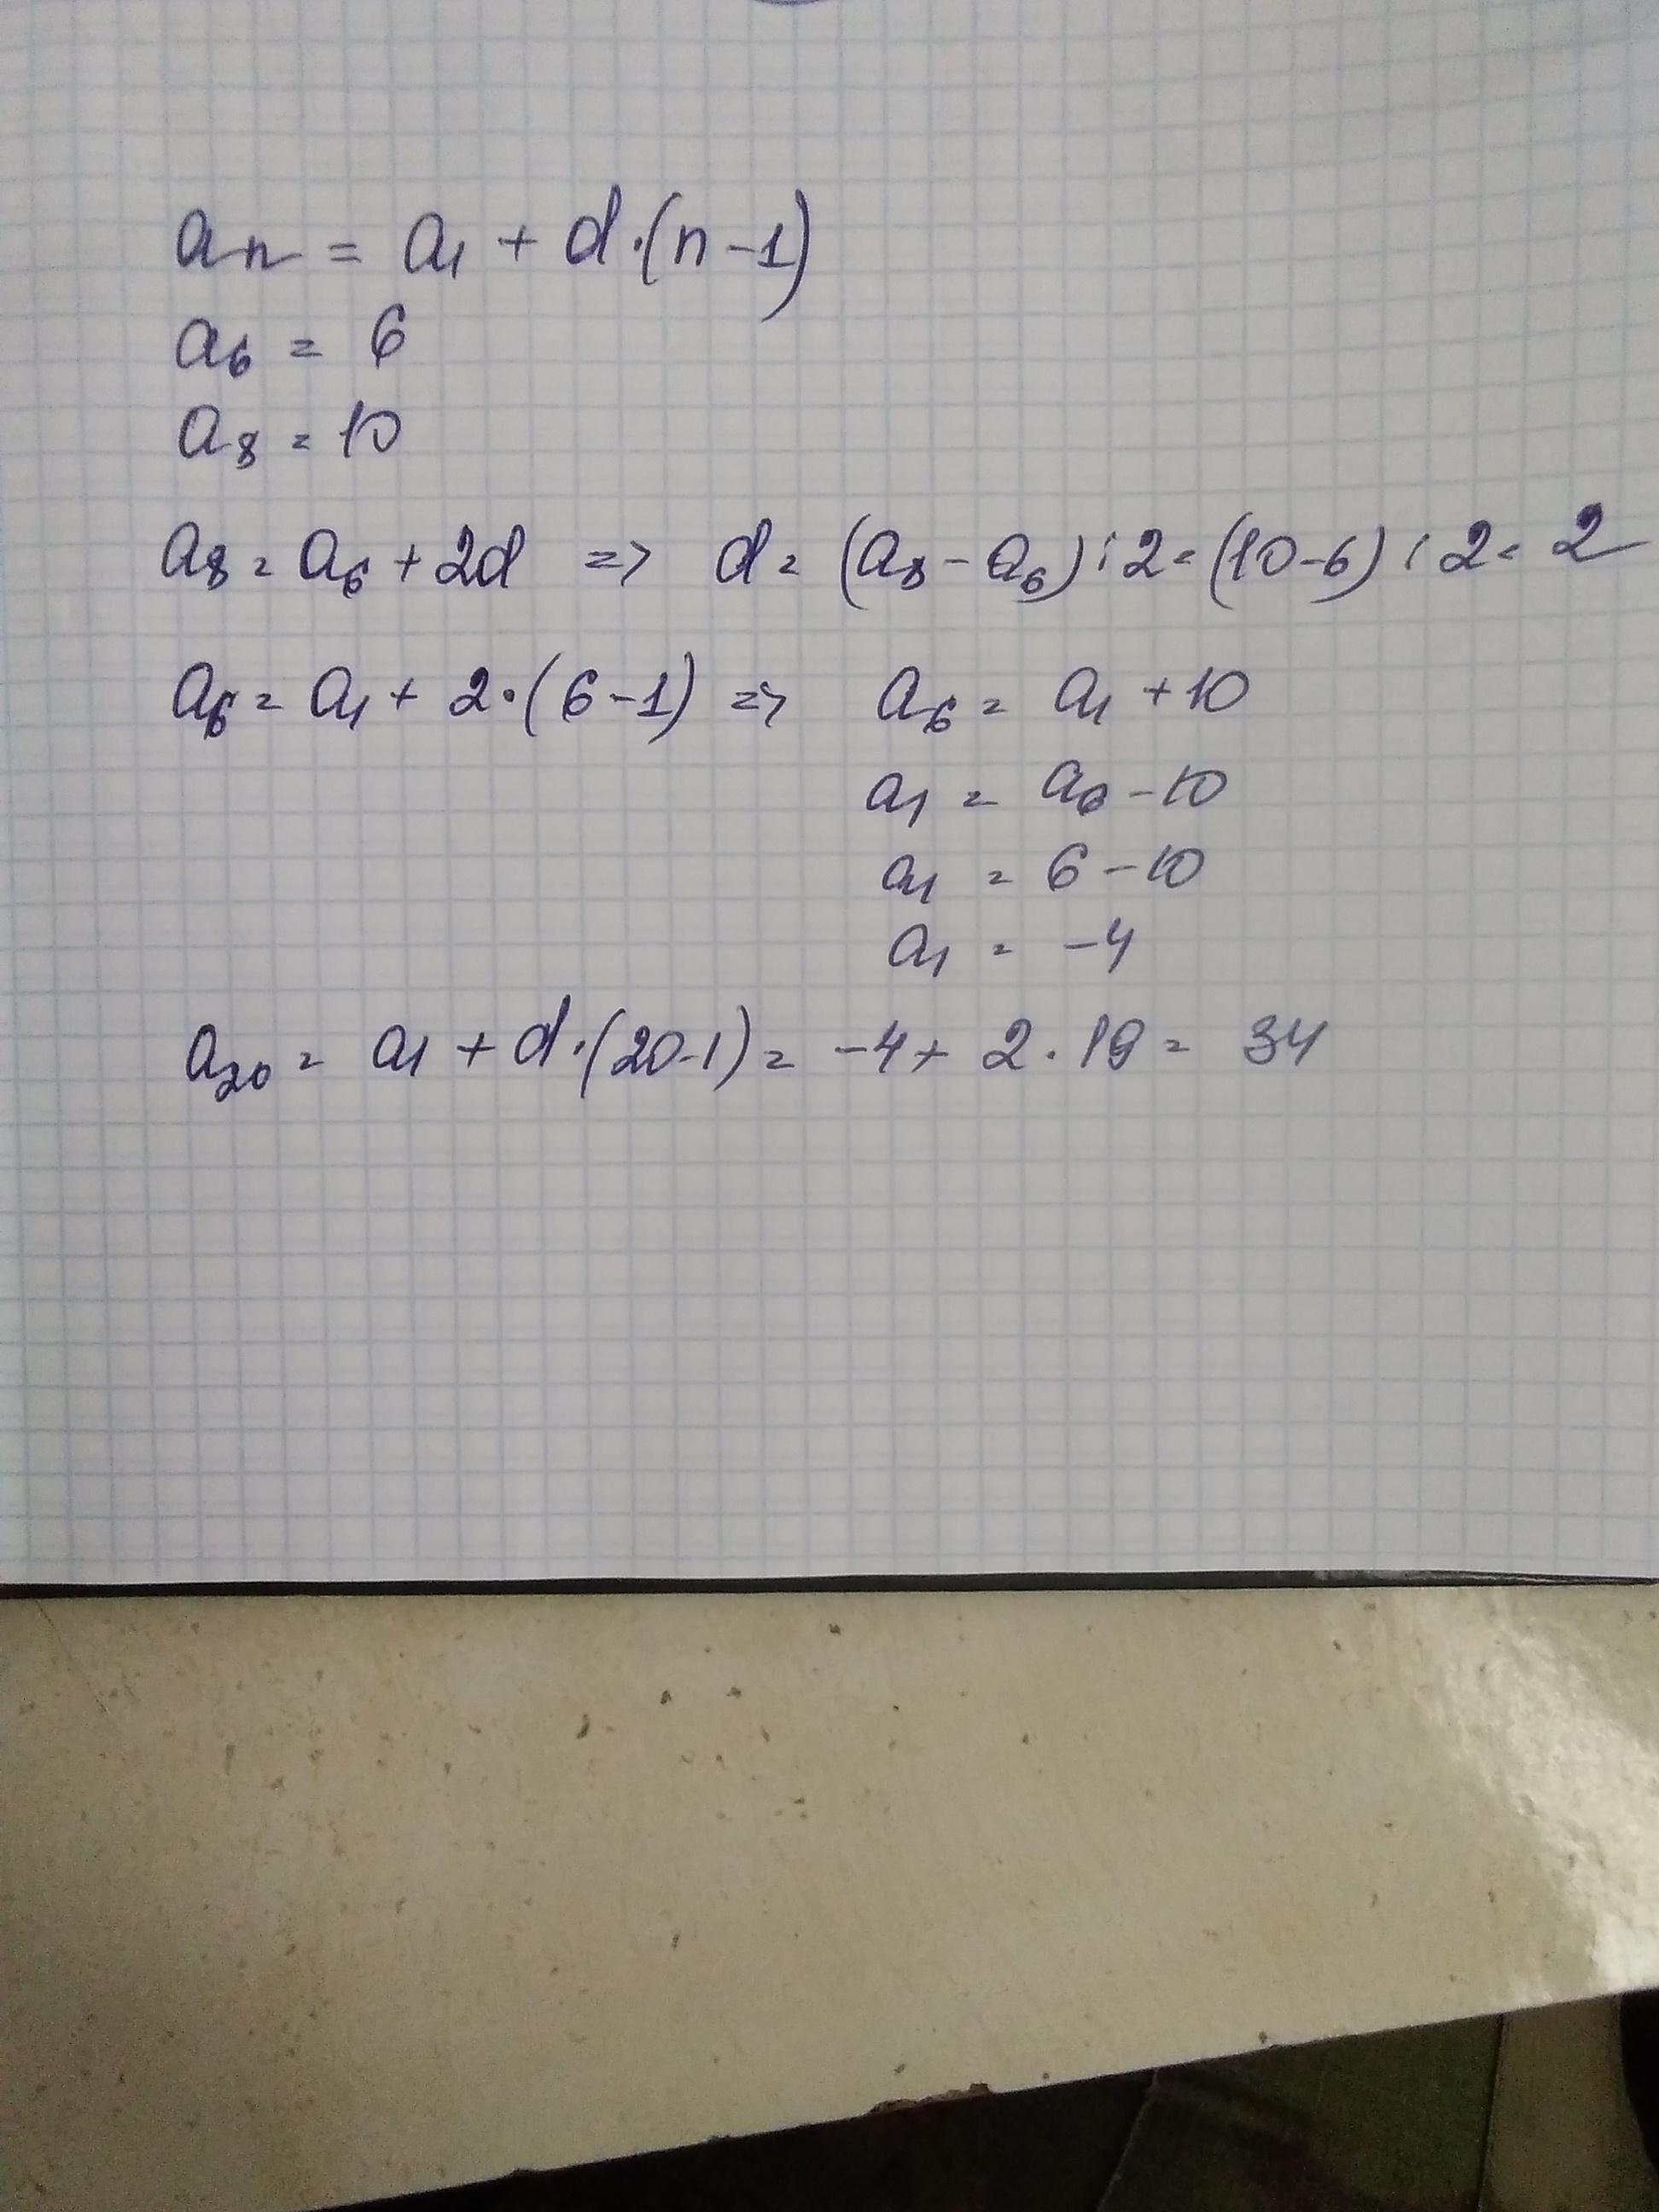 aₙ = a₁ + d·(n-1)
a₆ = 6
a₈ = 10
a₈ = a₆ + 2d => d = (a₈ - a₆) : 2 = (10-6) : 2 = 2
a₆ = a₁ + 2·(6-1) => a₆ = a₁ + 10
a₁ = a₆ - 10
a₁ = 6 - 10
a₁ = -4
a₂₀ = a₁ + d·(20-1) = -4 + 2·19 = 34